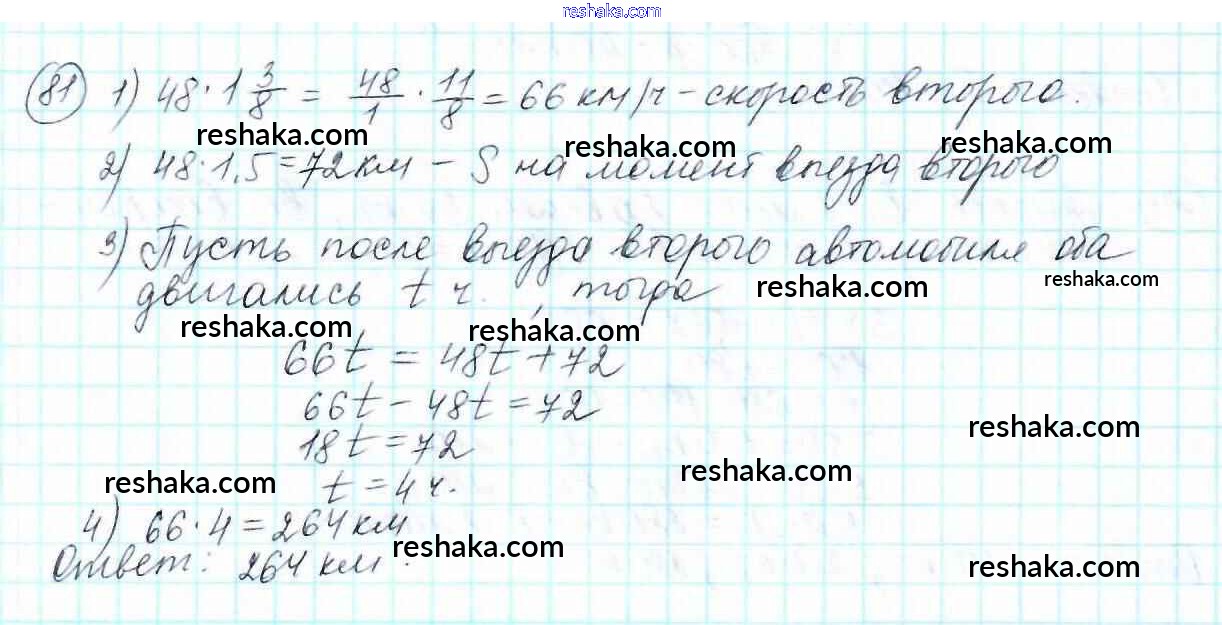 reshaka.com
81) 1) 48 · 1 3/8 = 48/1 · 11/8 = 66 км/ч – скорость второго.
reshaka.com
reshaka.com
reshaka.com
2) 48 · 1,5 = 72 км – S на момент выезда второго
3) Пусть после выезда второго автомобиля оба
двигались t ч., тогда
reshaka.com
reshaka.com
reshaka.com
reshaka.com
66t = 48t + 72
66t – 48t = 72
reshaka.com
18t = 72
reshaka.com
reshaka.com
t = 4 ч.
4) 66 · 4 = 264 км
reshaka.com
Ответ: 264 км.
reshaka.com